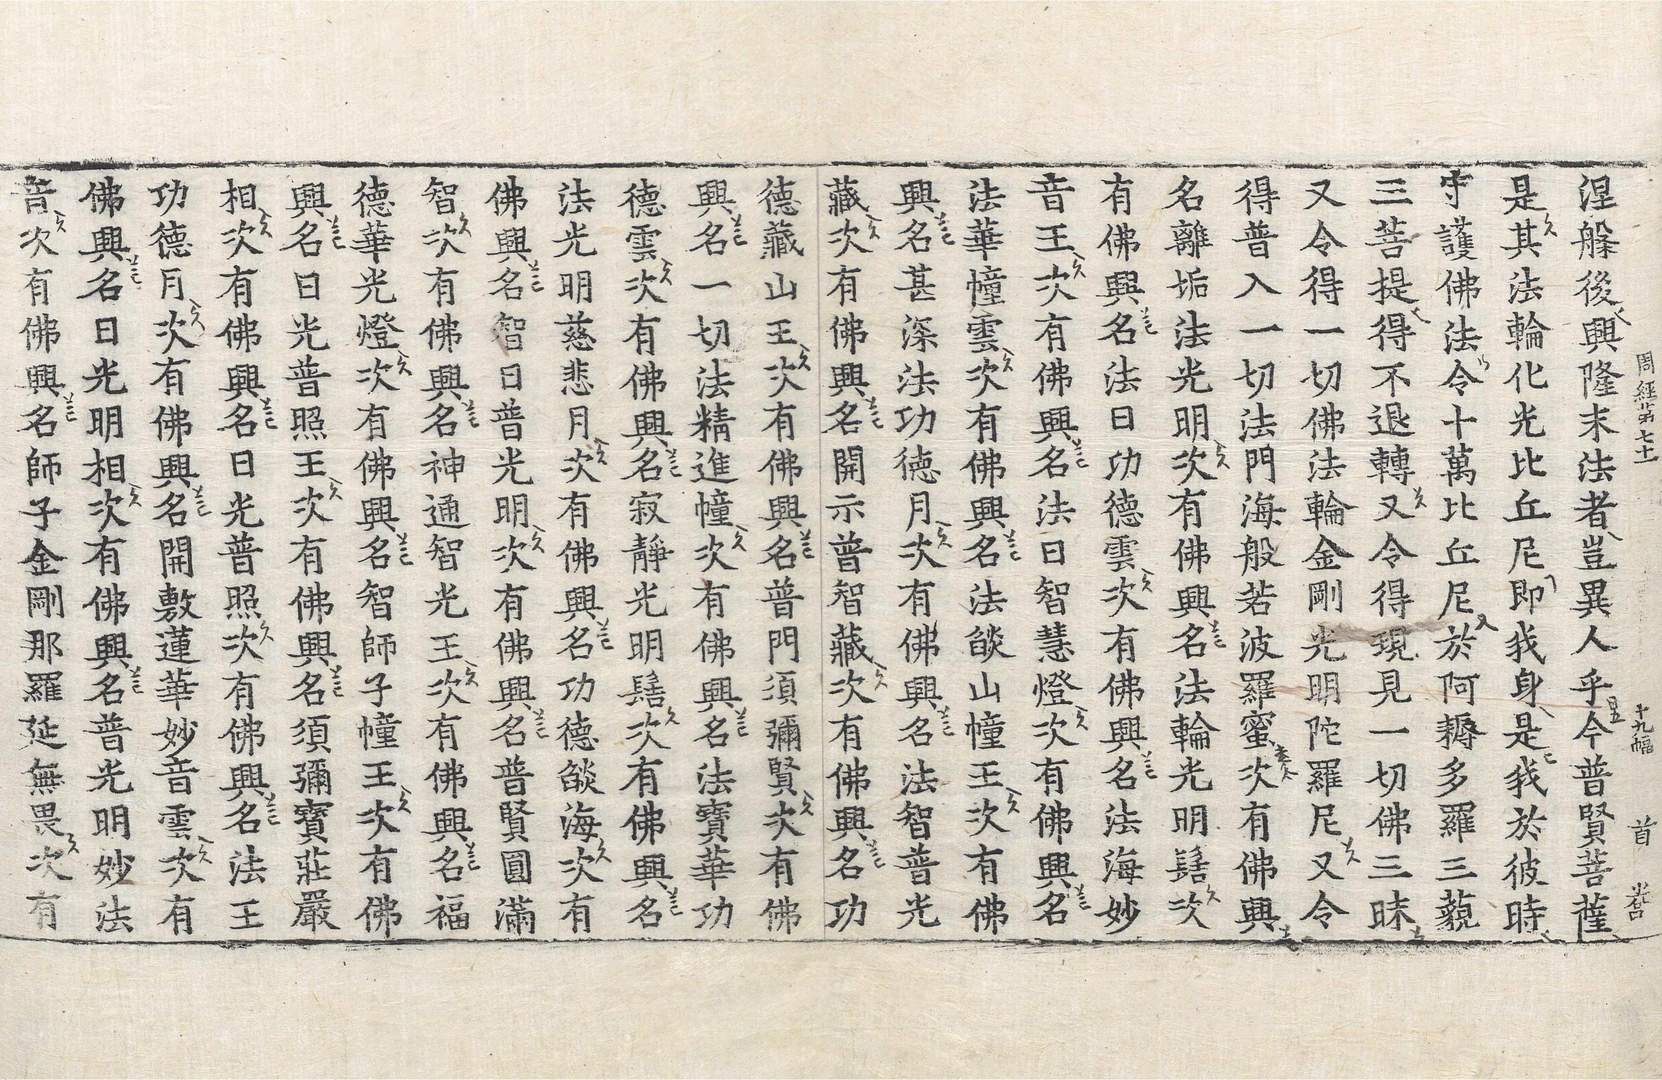 周經第七十一 十九幅 首
涅槃後興隆末法者豈異人乎今普賢菩薩
是其法輪化光比丘尼即我身是我於彼時
守護佛法令十萬比丘尼於阿耨多羅三藐
三菩提得不退轉又令得現見一切佛三昧
又令得一切佛法輪金剛光明陀羅尼又令
得普入一切法門海般若波羅蜜次有佛興
名離垢法光明次有佛興名法輪光明髻次
有佛興名法日功德雲次有佛興名法海妙
音王次有佛興名法日智慧燈次有佛興名
法華幢雲次有佛興名法燄山幢王次有佛
興名甚深法功德月次有佛興名法智普光
藏次有佛興名開示普智藏次有佛興名功
德藏山王次有佛興名普門須彌賢次有佛
興名一切法精進幢次有佛興名法寶華功
德雲次有佛興名寂靜光明髻次有佛興名
法光明慈悲月次有佛興名功德燄海次有
佛興名智日普光明次有佛興名普賢圓滿
智次有佛興名神通智光王次有佛興名福
德華光燈次有佛興名智師子幢王次有佛
興名日光普照王次有佛興名須彌寶莊嚴
相次有佛興名日光普照次有佛興名法王
功德月次有佛興名開敷蓮華妙音雲次有
佛興名日光明相次有佛興名普光明妙法
音次有佛興名師子金剛那羅延無畏次有